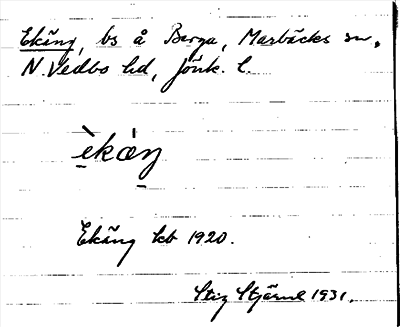 Ekäng, bs å Berga, Marbäcks sn,
N. Vedbo hd, Jönk. l.
èkàŋ
Ekäng kb 1920.
Stig Stjärne 1931.